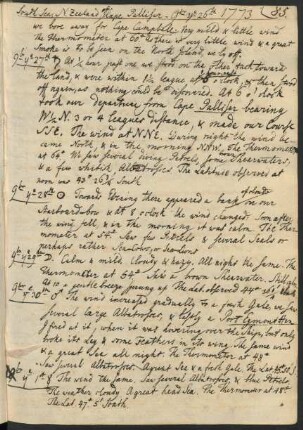 South Seas N. Zeeland Cape Pallisser. 9br ye 26th 1773 (85.
we bore away for Cape Campbell. Very mild & little wind
the Thermometer at 60° there is very little wind & a great
Smoke is to be seen on the North Island, we ly off
9br ye 27th. At ½ hour past one we stood on the other tack toward
the land, & were within 1½ league at 6 o'clock, & then stood
off again, as nothing could be discovered. At 8 o'clock
took our departure from Cape Pallisser bearing
W½N. 3 or 4 leagues distance, & made our Course
SSE. The wind at NNE. During night the wind be
came North, & in the morning NNW. The Thermometer
at 60°. We saw several diving Petrels, some Shearwaters,
& a few whitish Albatrosses. The Latitude observed at
noon was 42° 26½ South
9br ye 28th ☉ Toward Evening there appeared a bank of clouds on our
Starboard-bow & at 8 o'clock the wind changed. Soon after
the wind fell, & in the morning it was calm. The Ther-
mometer at 57. Saw Petrels & several Seals or
perhaps rather Sea lions
9br ye 29th ☽. Calm & mild. Cloudy & hazy. All night the same. The
Thermometer at 54° Saw a brown Shearwater.
At 10 a gentle breeze sprung up. The Lat. observed 44°
9br ye 30th ♂ The wind increased gradually to a fresh gale, we saw
several large Albatrosses, & lastly a Port Egmont hen
I fired at it, when it was hovering over the Ship, but only
broke its leg & some feathers in its wing. The same wind
& a great Sea all night. The Thermometer at 48°
Saw several Albatrosses. A great Sea & a fresh Gale. The Lat.
Xbr ye 1st ☿ The wind the same. Saw several Albatrosses, & blue Petrels
The weather cloudy. A great head Sea. The Thermometer at 48°
The Lat. 47° 5' South